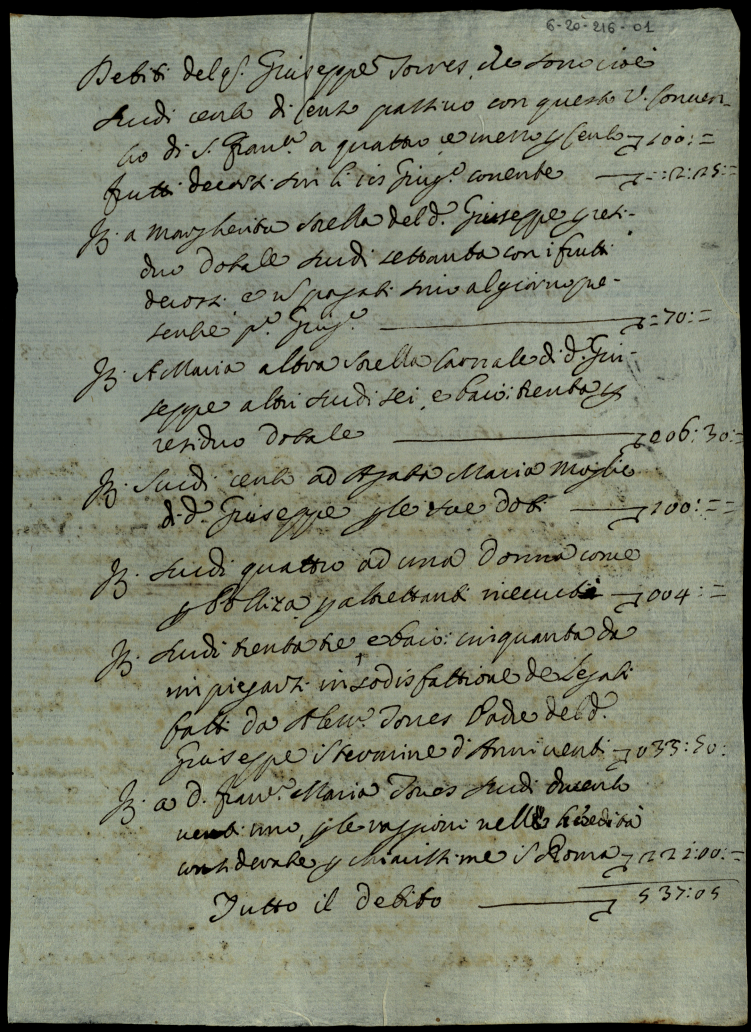 6-20-216-01
Debiti del q. Giuseppe Torres, che sono cioè
Scudi cento di Cento passivo con questo V. Conven-
to di S. Fran.co a quattro e mezzo p Cento 100:=
frutti decorsi sin li Giug.o corrente =:2:25:=
It. a Margherita Sorella del d. Giuseppe p resi-
duo dotale scudi settanta con i frutti
decorsi e n pagati sino al giorno pre-
sente p.o Giug.o =70:=
It. A Maria altra Sorella Carnale di d. Giu-
seppe altri scudi sei, e baio: trenta p
residuo dotale 006:30:=
It. Scudi cento ad Agata Maria Moglie
di d. Giuseppe p le sue doti 100:==
It. Scudi quattro ad una donna come
p Polliza p altrettanti ricevuti 004:=
It. Scudi trenta tre e baio: cinquanta da
impiegarsi in sodisfattione de Legati
fatti da Torres Padre del d.
Giuseppe in termine d'Anni venti 033:50:
It. a D. Fran.co Maria Torres scudi ducento
venti uno, p le raggioni nell heredità
considerate p Roma 221:00:=
Tutto il debito 537:05